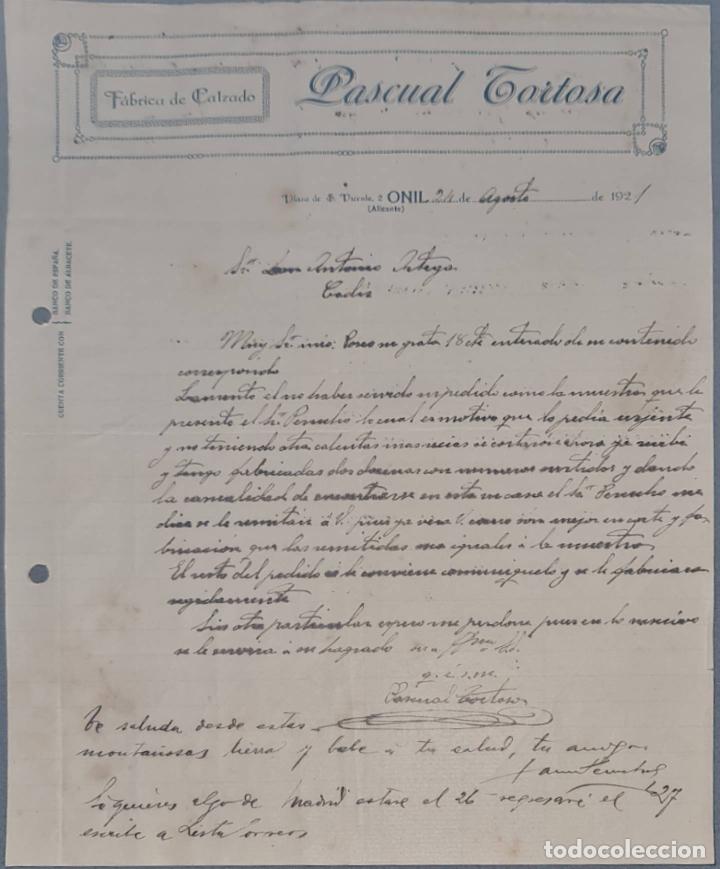 Fábrica de Calzado
Pascual Tortosa
Plaza de S. Vicente, 2 ONIL 24 de Agosto de 1921
(Alicante)
CUENTA CORRIENTE CON
BANCO DE ESPAÑA.
BANCO DE ALBACETE.
Sr. Don Antonio Ortega
Cadiz
Muy Sr. mio: Poseo su grata 18 cte enterado de su contenido
correspondo
Lamento el no haber servido su pedido como la muestra que le
presento el Sr. lo cual es motivo que lo pedia urjente
y no teniendo otra ahora ya recibi
y tengo fabricadas dos docenas con numeros surtidos y dando
la casualidad de encontrarse en esta su casa el Sr. me
dice se le remitan á V. pues ya vera V. como son mejor en corte y fa-
bricacion que las remitidas iguales á la muestra
El resto del pedido si le conviene comuniquelo y se le fabricara
rapidamente
Sin otro particular espero me perdone pues en lo sucesivo
se le servira á su agrado su
q.e.s.m.
Pascual Tortosa
Te saluda desde estas
montañosas tierra y bebe á tu salud, tu amigo
Si quieres algo de Madrid estare el 26 regresaré el 27
escribe a Lista Correos
todocoleccion.net